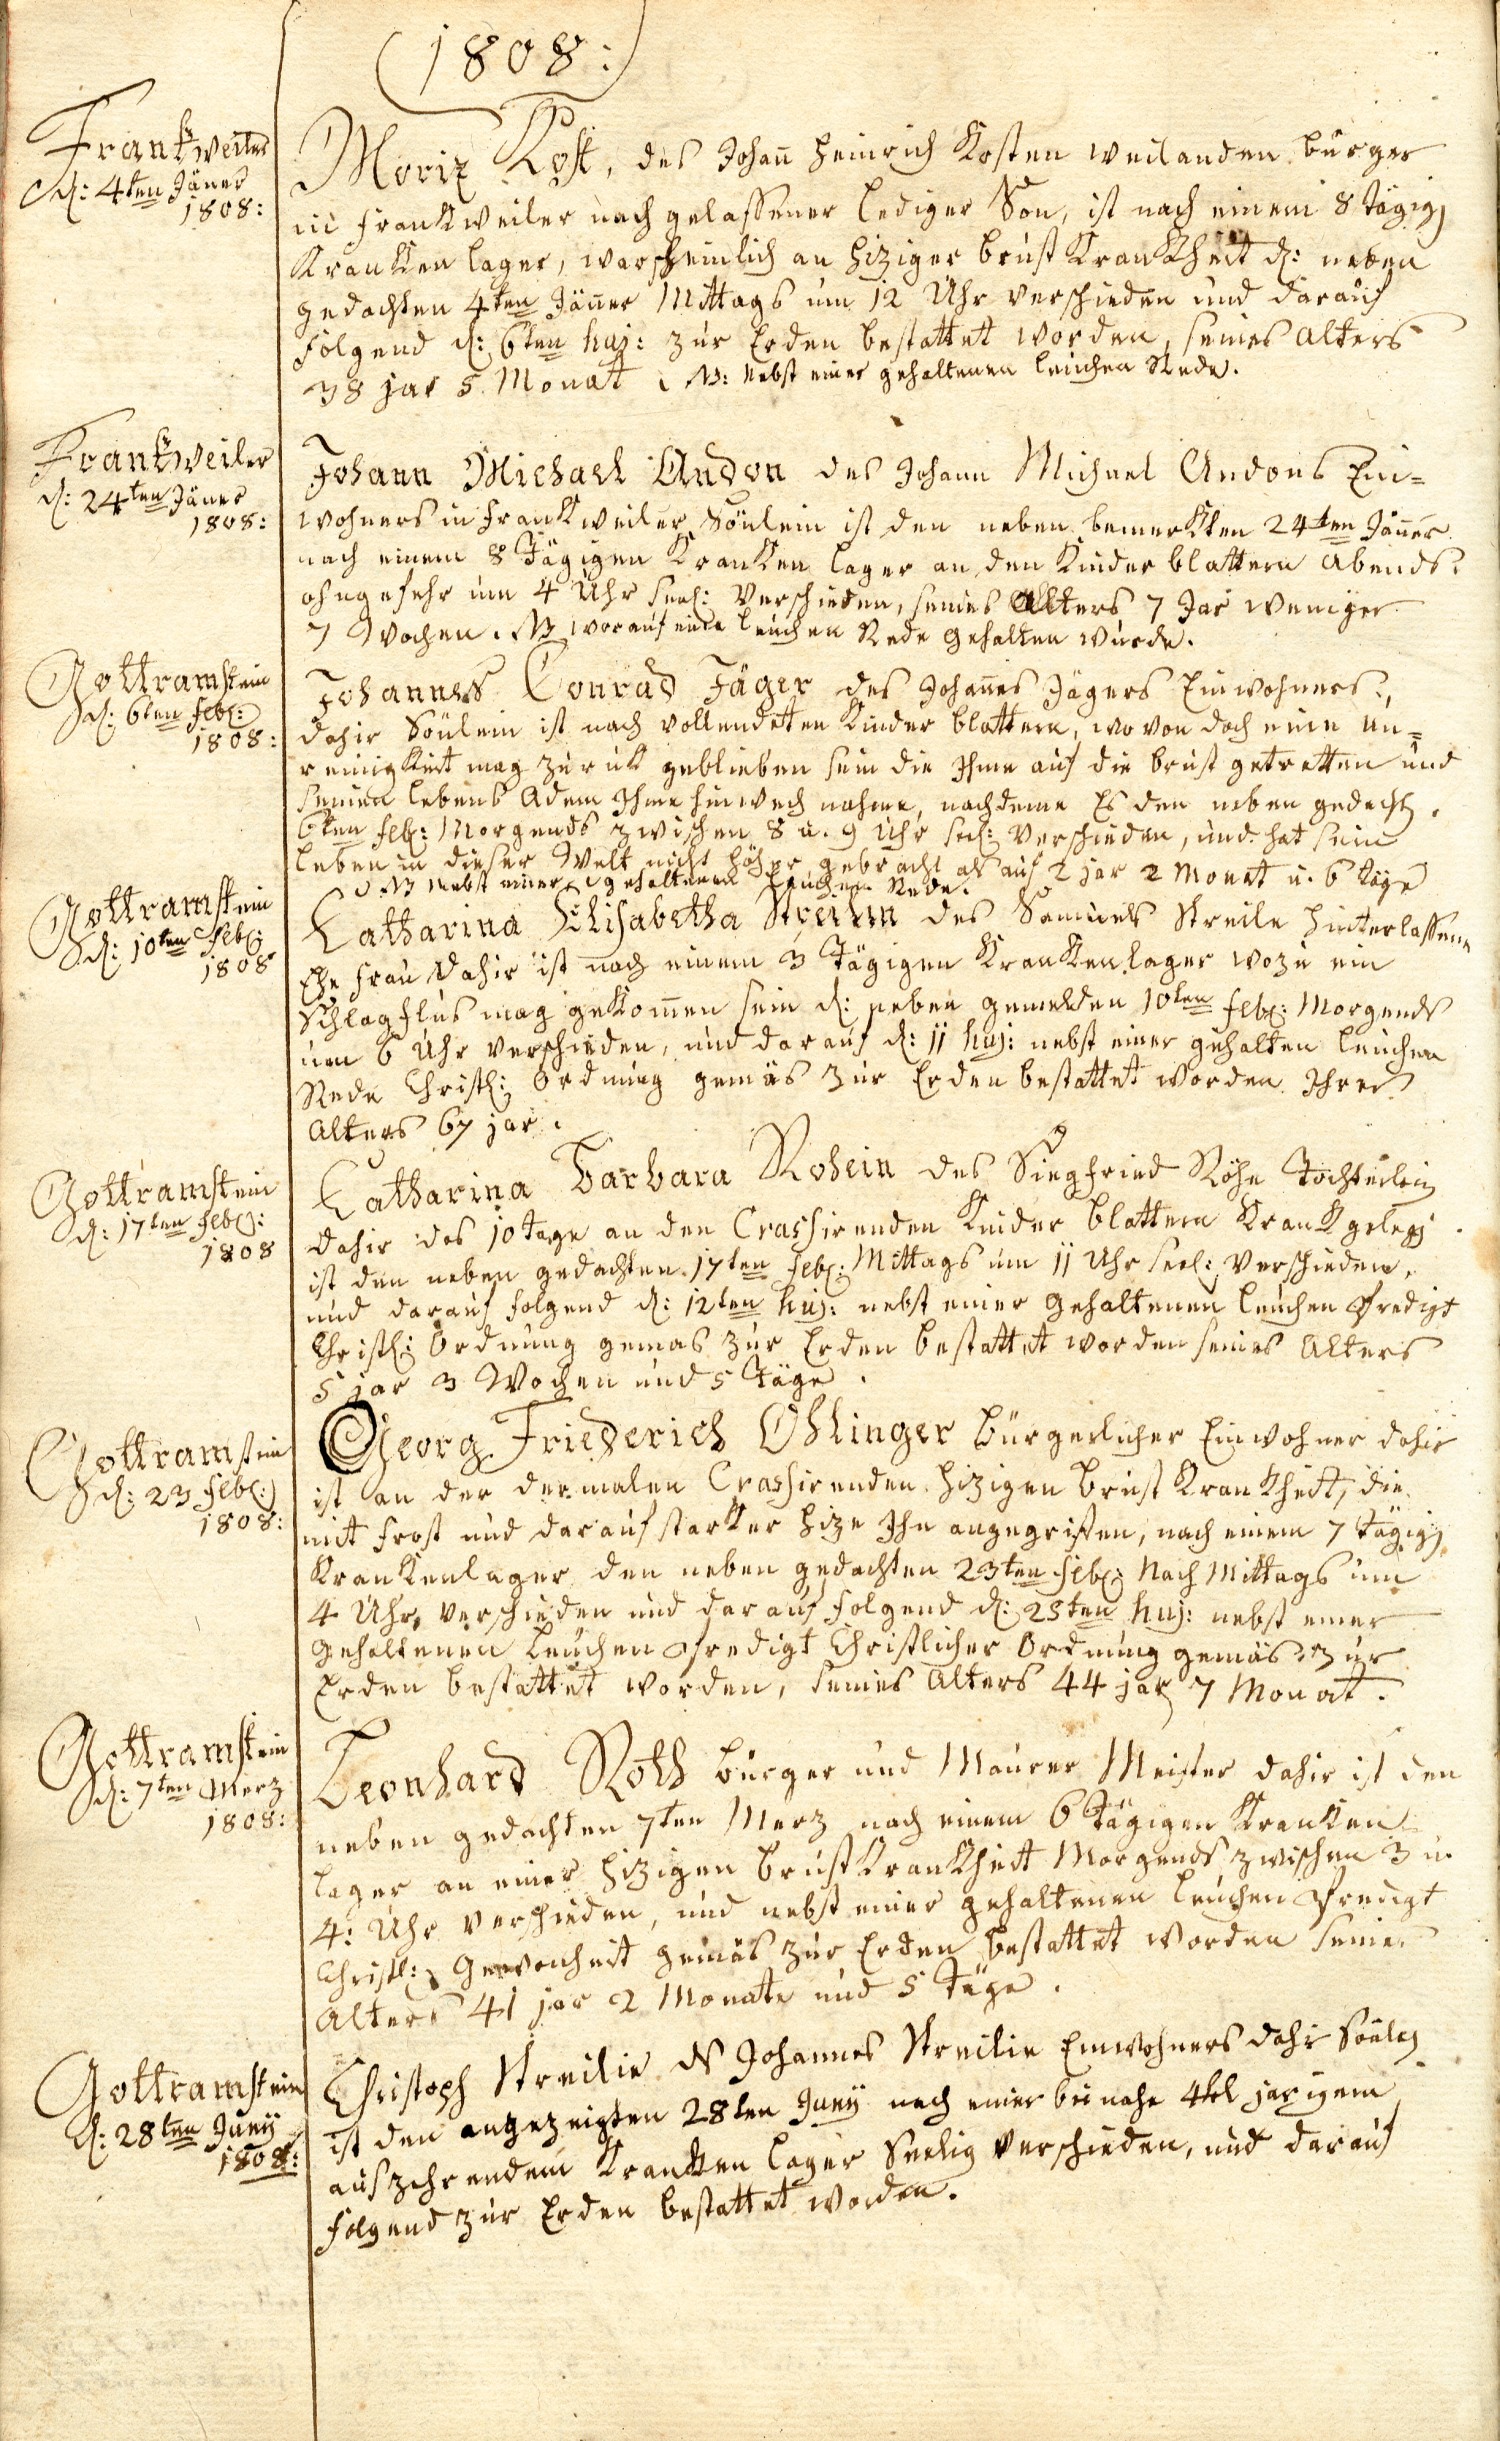 (1808:)
Frankweiler
d: 4ten Jäner
1808:
Moriz Kost, des Johan̄ Heinrich Kosten weilanden burger
in Frankweiler nach gelassener lediger Son, ist nach einem 8 tägig
Kranken lager, warscheinlich an hiziger brust Krankheit d: neben
gedachten 4ten Jän̄er Mittags um 12 Uhr verschieden und darauf
folgend d: 6ten huj: zur Erden bestattet worden, seines alters
38 jar 5 Monat. NB: Nebst einer gehaltenen leuchen Rede.
Frankweiler
d: 24ten Jäner
1808:
Johann Michael Andon des Johann Michael Andons Ein=
wohners in Frankweiler Sönlein ist den neben bemerkten 24ten Jän̄er
nach einem 8 Tägigen Kranken lager an den Kinder blattern Abends
ohngefehr um 4 Uhr seel: verschieden, seines Alters 7 Jar weniger
7 Wochen. NB worauf eine leuchen Rede gehalten wurde.
Gottramstein
d: 6ten Feb:
1808:
Johannes Conrad Jäger des Johan̄es Jägers Einwohners
dahir Sönlein ist nach vollendeten Kinder blattern, wovon doch eine un=
reinigkeit mag zuruk geblieben sein die Ihme auf die brust getretten und
seinen lebens Adem Ihme hinwech nahme, nachdeme Es den neben gedacht
6ten Feb: Morgends zwischen 8 u. 9 Uhr seel: verschieden, und hat sein
leben in dieser Welt nicht höher gebracht als auf 2 jar 2 Monat u. 6 täge
NB nebst einer gehaltenen leuchen Rede.
Gottramstein
d: 10ten Feb:
1808
Catharina Elisabetha Streilin des Samuels Streile hinterlassene
Ehe frau dahir ist nach einem 3 Tägigen Krankenlager wozu ein
Schlagflus mag gekom̄en sein d: neben gemelden 10ten Feb: Morgends
um 6 Uhr verschieden, und darauf d: 11 huj: nebst einer gehalten leuchen
Rede Christl: Ordnung gemäs zur Erden bestattet worden Ihres
Alters 67 jar.
Gottramstein
d: 17ten Feb:
1808
Catharina Barbara Rohein des Siegfried Röhe Töchterlein
dahir das 10 tage an den Crassirenden Kinder blattern Krank gelegen
ist den neben gedachten 17ten Feb: Mittags um 11 Uhr seel: verschieden,
und darauf folgend d: 12ten huj: nebst einer gehaltenen leuchen Predigt
Christl: Ordnung gemas zur Erden bestattet worden seines Alters
5 jar 3 Wochen und 5 Täge.
Gottramstein
d: 23 Feb:
1808:
Georg Friederich Ohlinger Bürgerlicher Einwohner dahir
ist an der dermalen Crassirenden hizigen brust Krankheit, die
mit frost und darauf starker hize Ihn angegriffen, nach einem 7 tägig
Krankenlager den neben gedachten 23ten Feb: Nach Mittags um
4 Uhr verschieden und darauf folgend d: 25ten huj: nebst einer
gehaltenen leuchen Predigt Christlicher Ordnung gemäs zur
Erden bestattet worden, seines Alters 44 jar 7 Monat.
Gottramstein
d: 7ten Merz
1808:
Leonhard Roth burger und Maurer Meister dahir ist den
neben gedachten 7ten Merz nach einem 6 Tägigen Kranken
lager an einer hizigen brust Krankheit Morgends zwischen 3 u.
4: Uhr verschieden, und nebst einer gehaltenen leuchen Predigt
Christl: Gewonheit gemäs zur Erden bestattet worden seines
Alters 41 jar 2 Monate und 5 Täge.
Gottramstein
d: 28ten Juny
1808:
Christoph Streilie Johannes Streilie Einwohners dahir
ist den angezeigten 28ten Juny nach einer bei nahe jarigem
auszehrendem Kranken lager Seelig verschieden, und darauf
folgend zur Erden bestattet worden.